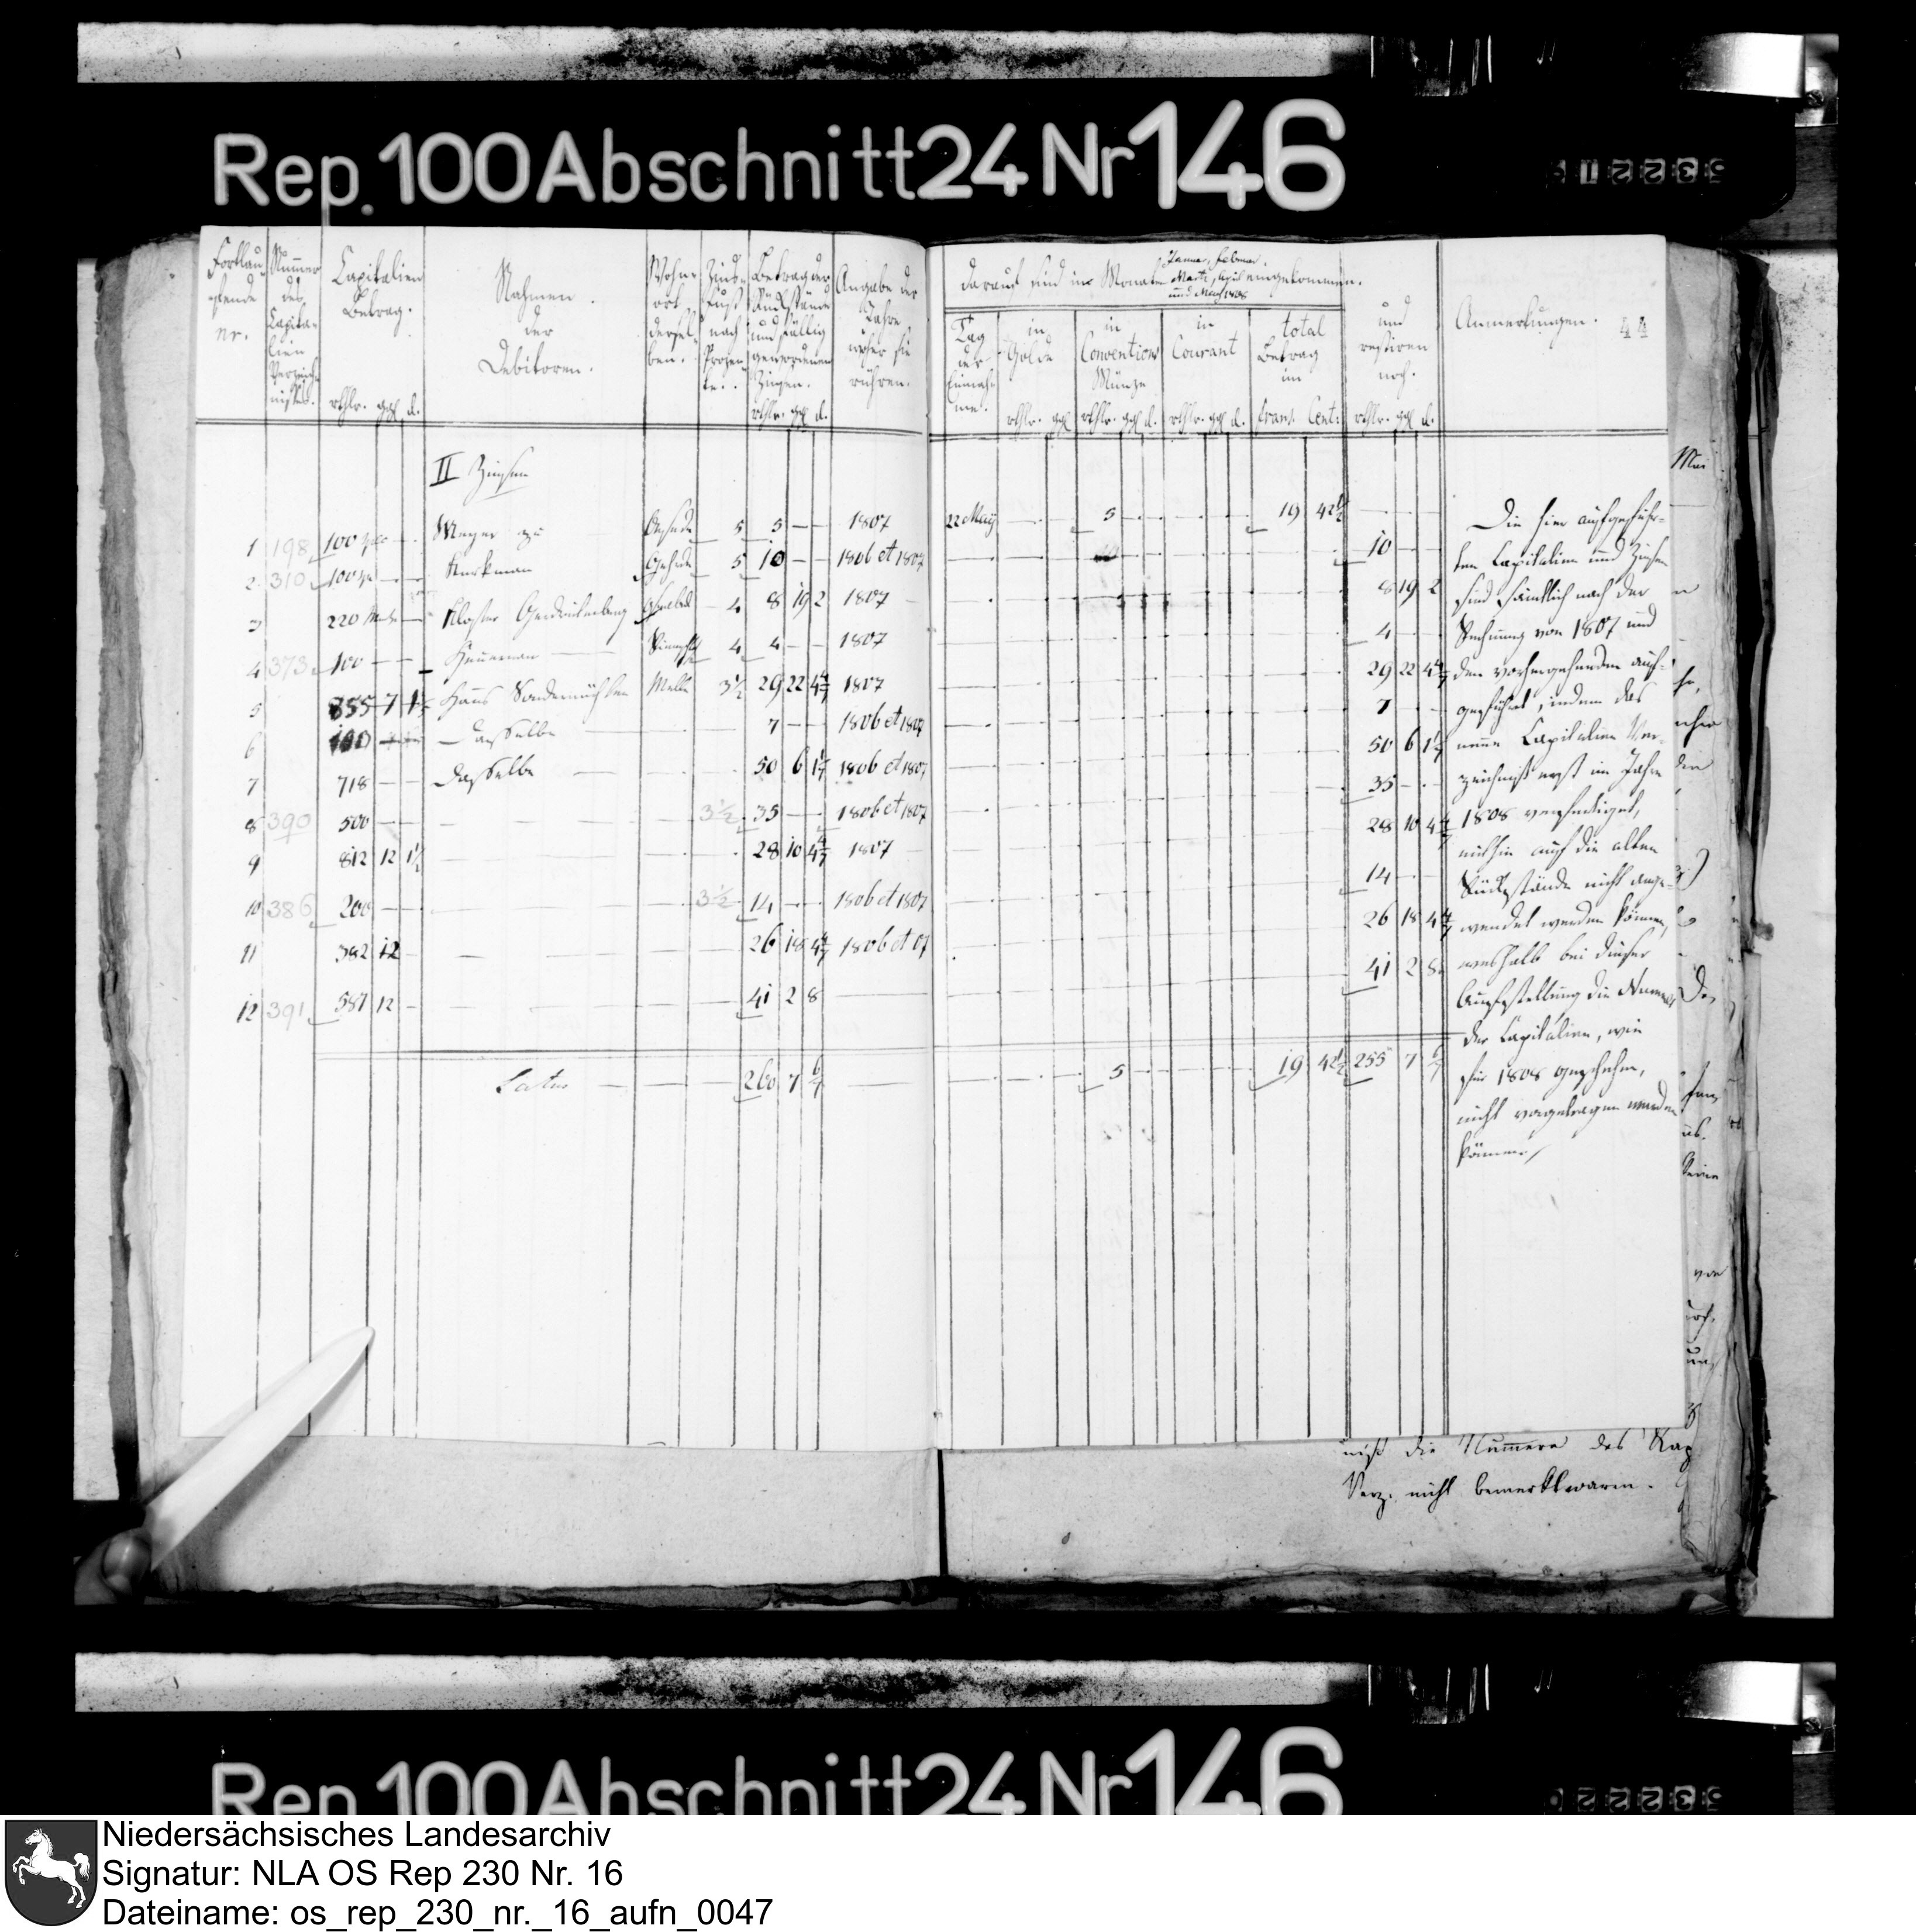 Rep. 100 Abschnitt 24 Nr 146
Fortlau
fende
nr.
Nummer
des
Capita-
lien
Verzeich
nisses.
Capitalien
Betrag.
rthlr. ggl d.
Nahmen
der
Debitoren.
Wohn-
ort
dersel-
ben.
Zins-
fuß
nach
Prozen
ten.
Betrag der
Rückstände
und fällig
gewordenen
Zinsen.
rthlr. ggl d.
Angabe der
Jahre,
woher sie
rühren.
Darauf sind im Monat Januar, Februar, Martz, April und May 1808 eingekommen.
Tag
der
Einnah
me.
in
Golde
rthlr. ggl
in
Conventions
Münze
rthlr. ggl d.
in
Courant
rthlr. ggl d.
total
Betrag
in
frans. Cent.
und
restiren
noch.
rthlr. ggl d.
Anmerkungen.
44
II Zinsen
1 198 100 Meyer zu 5 5 — — 1807 22 May 5 19 42½
2 310 100 Kerkman 5 10 — — 1806 et 1807 10
3 220 Kloster Gerdrutenberg 4 8 19 2 1807 8 19 2
4 373 100 — — Heuerman 4 4 — — 1807 4
5 855 7 1 Haus Sondermühlen Melle 3½ 29 22 4 4/7 1807 29 22 4 4/7
6 100 — Dasselbe 7 — — 1806 et 1807 7
7 718 — — Dasselbe 50 6 1 1/7 1806 et 1807 50 6 1 1/7
8 390 500 — — 3½ 35 — — 1806 et 1807 35
9 812 12 1½ 28 10 4 4/7 1807 28 10 4 4/7
10 386 200 — 3½ 14 — — 1806 et 1807 14
11 382 12 26 18 4 4/7 1806 et 07 26 18 4 4/7
12 391 587 12 — 41 2 8 41 2 8
Latus 260 7 6/7 5 19 42½ 255 7 6/7
Die hier aufgeführ-
ten Capitalien und Zinsen
sind sämtlich nach der
Rechnung von 1807 und
den vorhergehenden auf-
geführt, indem das
neue Capitalien Ver
zeichniß erst im Jahre
1808 verfertiget,
mithin auf die alten
Rückstände nicht ange-
wendet werden können,
weshalb bei dieser
Aufstellung die Numer
der Capitalien, wie
für 1808 geschehen,
nicht vorgetragen werden
können
niß die Nummern des Kap
Verz. nicht bemerkt waren.
Rep. 100 Abschnitt 24 Nr 146
Niedersächsisches Landesarchiv
Signatur: NLA OS Rep 230 Nr. 16
Dateiname: os_rep_230_nr._16_aufn_0047